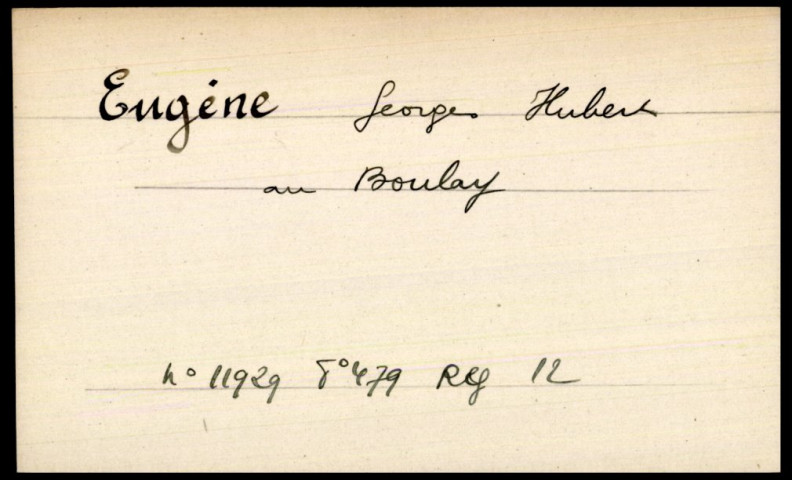 Eugène Georges Hubert
au Boulay
n° 11929 F° 479 Reg 12